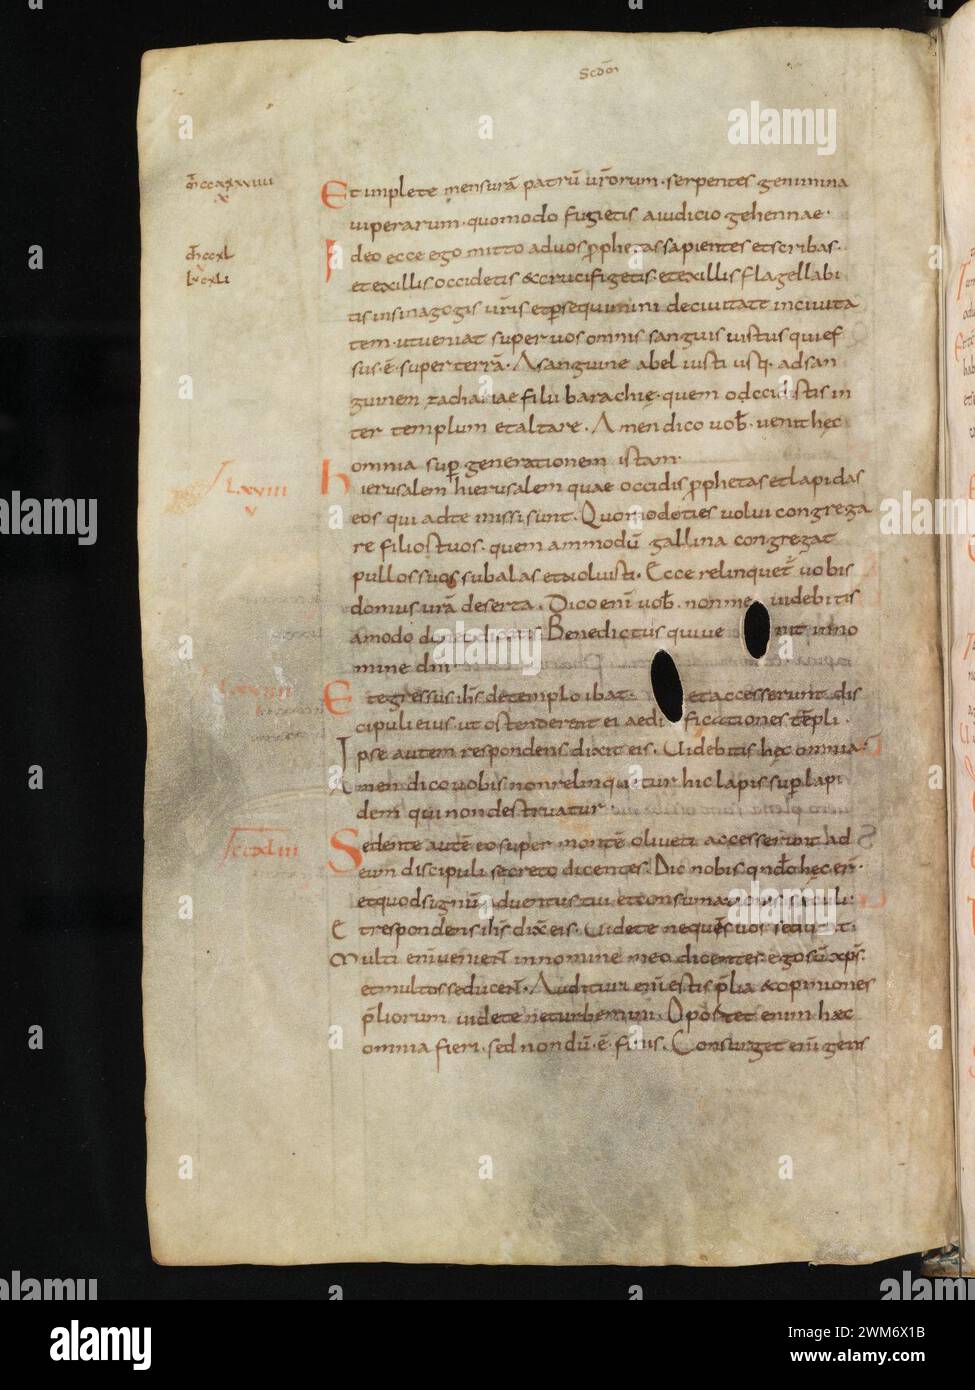 Scdm̄
m̄ccxxxviiii
x
Et inplete mensurā patrū ūrorum · serpentes genimina
uiperarum · quomodo fugietis a iudicio gehennae ·
m̄ccxl
Ideo ecce ego mitto ad uos p̄phetas sapientes et scribas ·
v
Lucxli
et ex illis occidetis & crucifigetis · et ex illis flagellabi
tis in sinagogis ūris et p̄sequimini de ciuitate in ciuita
tem · ut ueniat super uos omnis sanguis iustus qui ef
sus · ē · super terrā · A sanguine abel iusti usq · ad san
guinem zachariae filii barachię · quem occidistis in
ter templum et altare · Amen dico uob̄ · uenit hęc
omnia sup̄ generationem istam ·
Lxxviii
v
hierusalem hierusalem quae occidis p̄phetas et lapidas
eos qui ad te missi sunt · Quoties uolui congrega
re filios tuos · quem ammodū gallina congregat
pullos suos sub alas et noluisti · Ecce relinquet̄ uobis
domus ūrā deserta · Dico enī uob̄ · non me uidebitis
amodo donec dicatis · Benedictus qui ue nit in no
mine dn̄i
Et egressus ih̄s de templo ibat · et accesserunt dis
cipuli eius · ut ostenderent ei aedi ficationes tēpli ·
Ipse autem respondens dixit eis · Uidebitis hęc omnia ·
Amen dico uobis non relinquetur hic lapis sup̄ lapi
dem qui non destruatur ·
ccxlii
Sedente autē eo super montē oliueti accesserunt ad
eum discipuli secreto dicentes · Dic nobis qn̄do hęc er̄ ·
et quod signū aduentus tui et consumationis seculi ·
Et respondens ih̄s dix̄ eis · Uidete ne quis uos seducat
Multi enī uenient in nomine meo dicentes ego sū xp̄s ·
et multos seducent · Audituri enī estis p̄lia & opiniones
p̄liorum uidete ne turbemini · Oportet enim haec
omnia fieri · sed nondū · ē · finis · Consurget enī gens
alamy
Image ID: 2WM6X1B
www.alamy.com